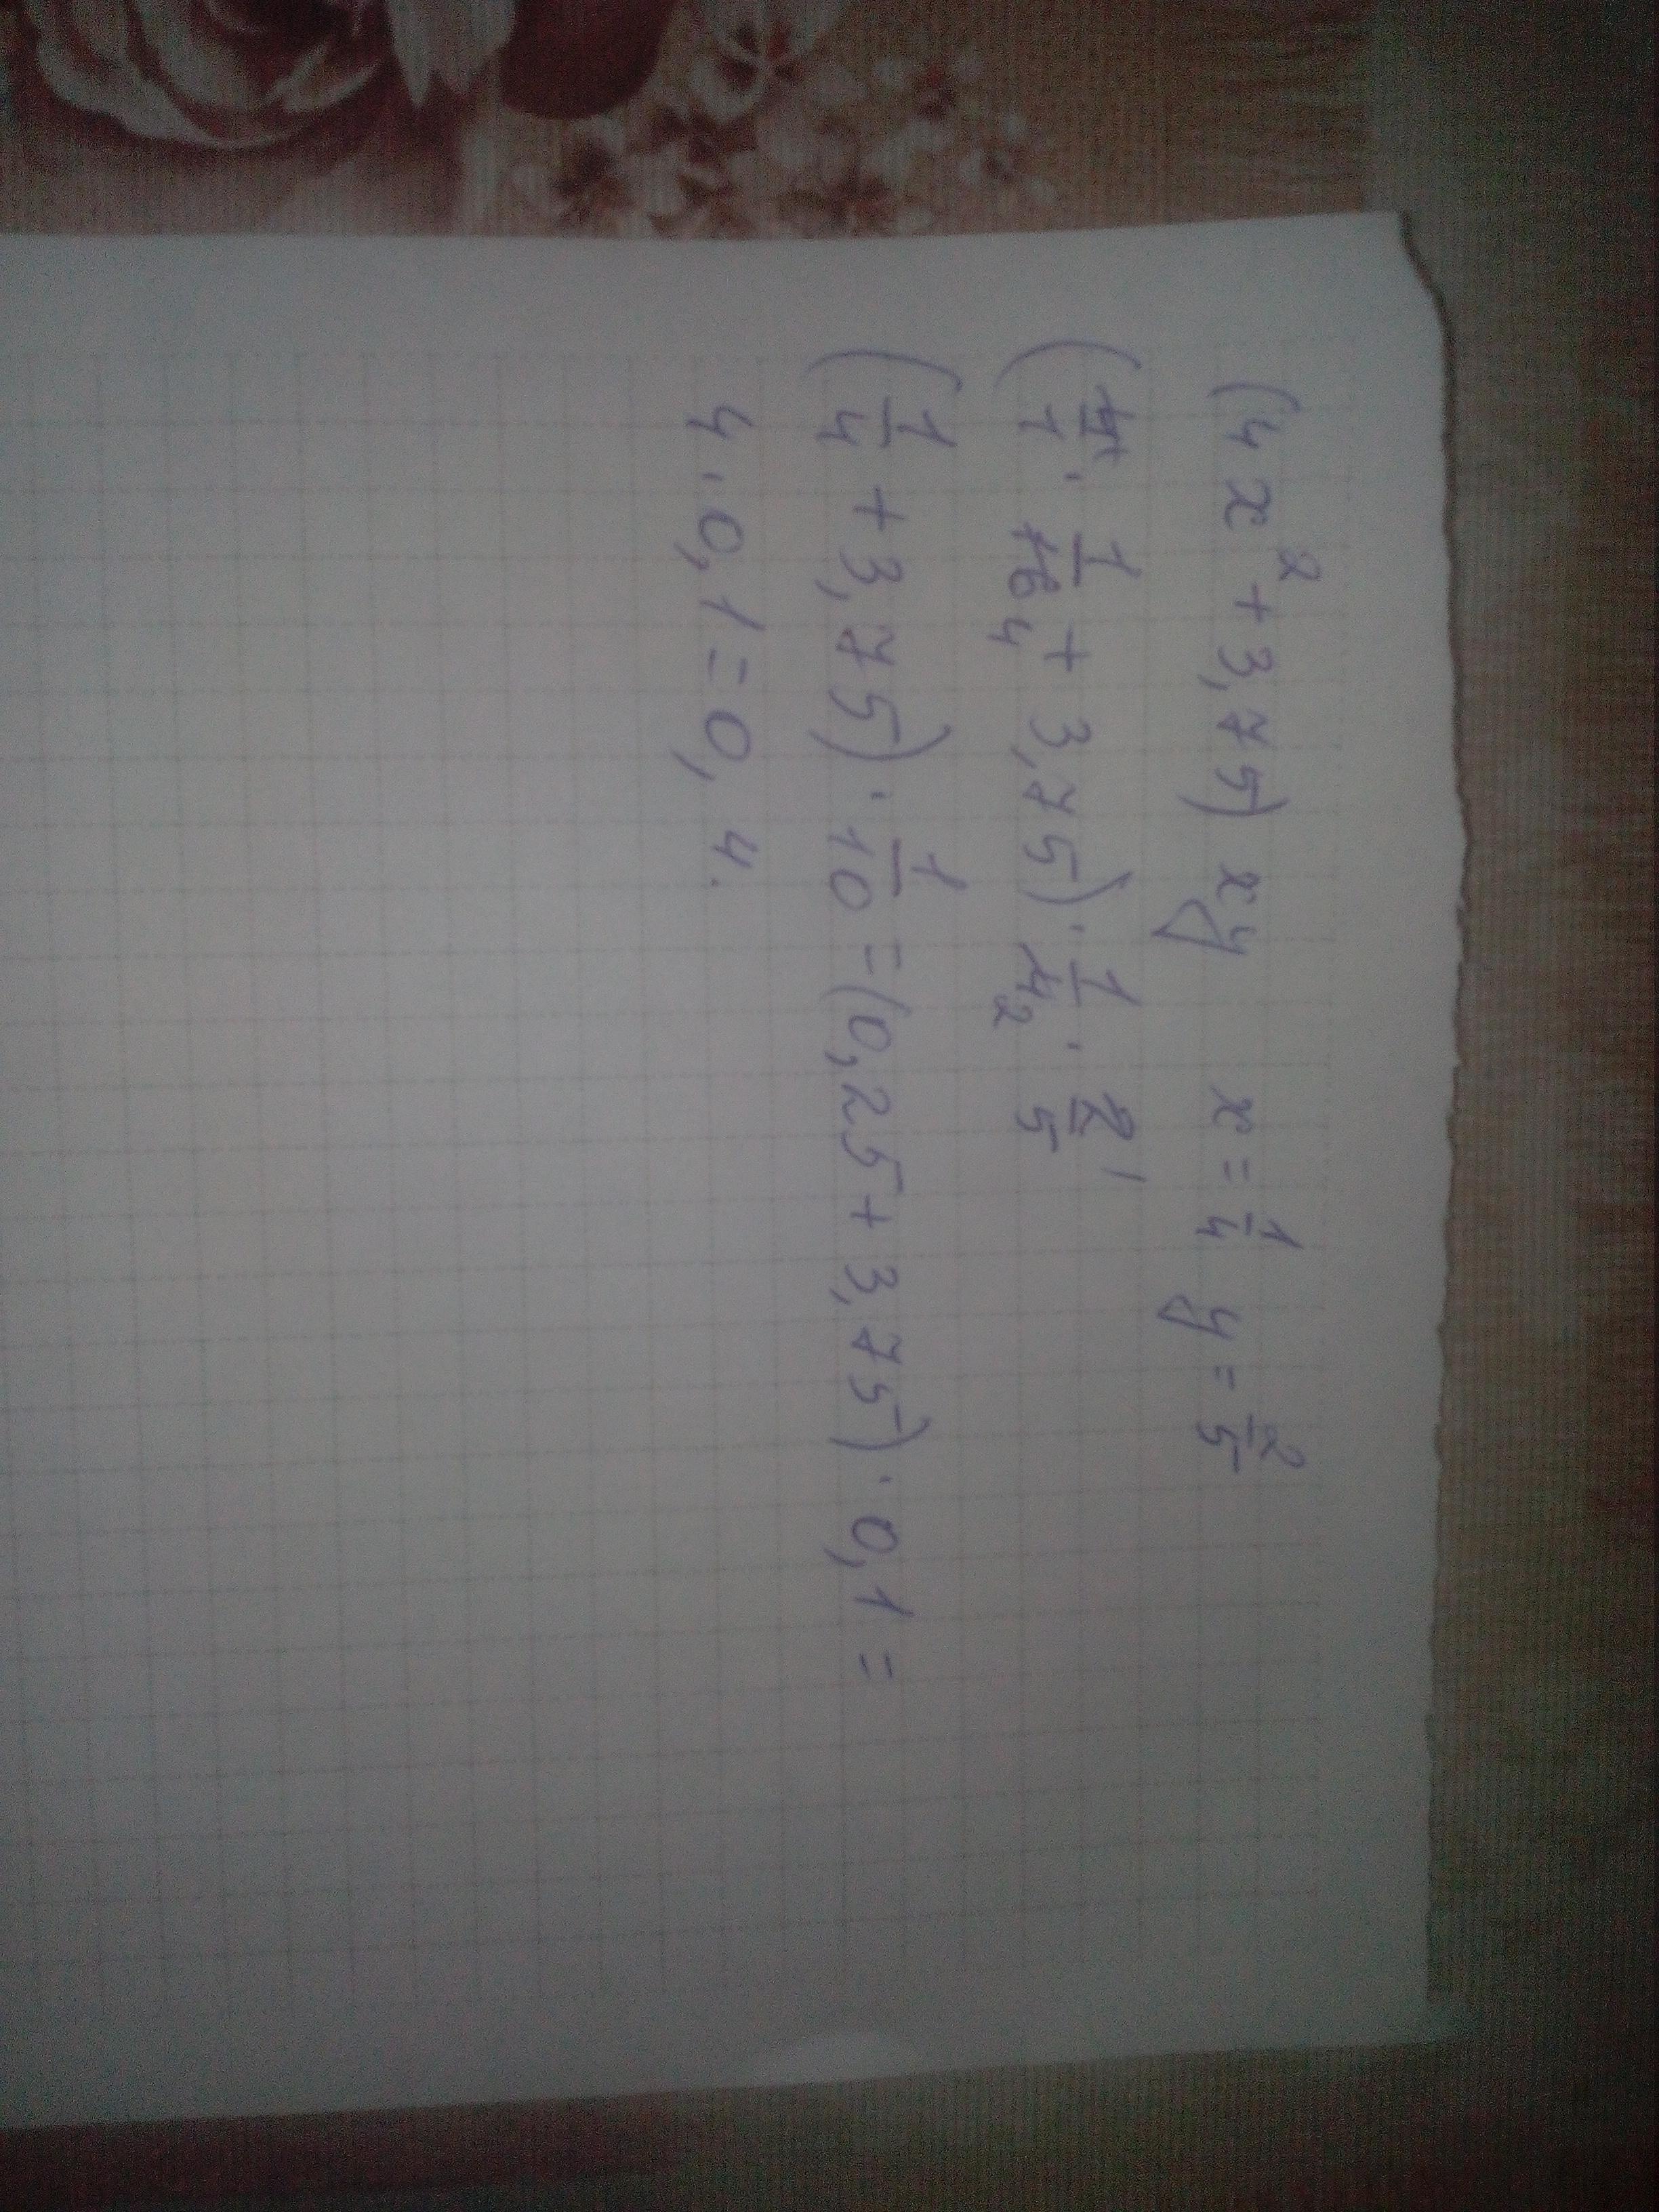 (4x² + 3,75) xy   x = 1/4   y = 2/5
(4/1 · 1/16 4 + 3,75) · 1/4 2 · 2/5 1
(1/4 + 3,75) · 1/10 = (0,25 + 3,75) · 0,1 =
4 · 0,1 = 0,4.